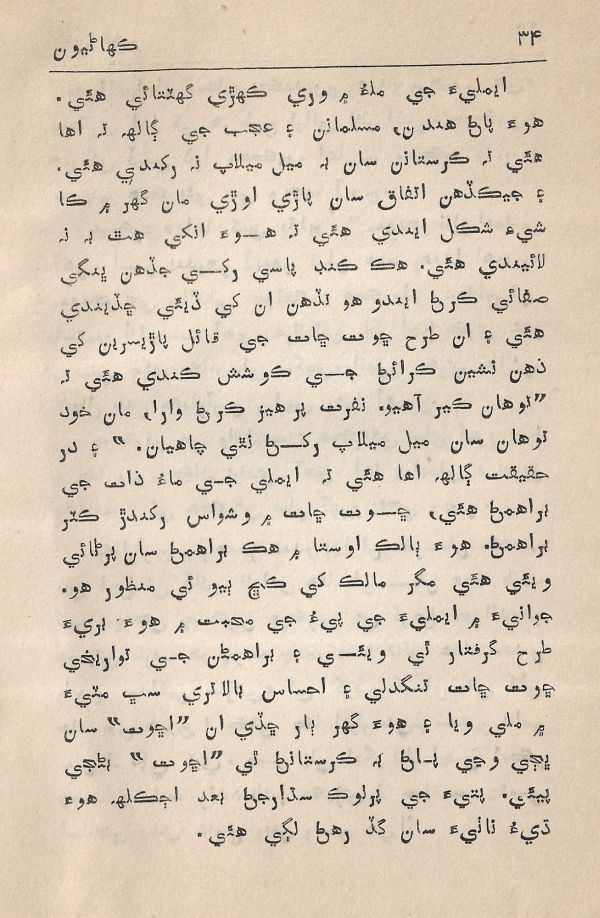 ۳۴ ڪهاڻيون
ايمليءَ جي ملڻ ۾ وري ڪهڙي گهٽتائي هئي.
هوءَ پاڻ هندن، مسلمانن ۽ عجب جي ڳالهه ته اها
هئي ته ڪرستانن سان به ميل ميلاپ نه رکندي هئي.
۽ جيڪڏهن اتفاق سان پاڙي اوڙي مان گهر ۾ ڪا
شيءِ شڪل ايندي هئي ته هوءَ انکي هٿ به نه
لائيندي هئي. هڪ ڪنڊ پاسي رکي جڏهن ڀنگي
صفائي ڪرڻ ايندو هو تڏهن ان کي ڏيئي ڇڏيندي
هئي ۽ ان طرح ڇوت ڇات جي قائل پاڙيسرين کي
ذهن نشين ڪرائڻ جي ڪوشش ڪندي هئي ته
”توهان ڪير آهيو. نفرت پرهيز ڪرڻ وارا، مان خود
توهان سان ميل ميلاپ رکڻ نٿي چاهيان.“ ۽ در
حقيقت ڳالهه اها هئي ته ايملي جي ماءُ ذات جي
براهمڻ هئي، ڇوت ڇات ۾ وشواس رکندڙ ڪٽر
براهمڻ. هوءَ ٻالڪ اوستا ۾ هڪ براهمڻ سان پرڻائي
ويئي هئي مگر مالڪ کي ڪڇ ٻيو ئي منظور هو.
جوانيءَ ۾ ايمليءَ جي پيءُ جي محبت ۾ هوءَ بريءَ
طرح گرفتار ٿي ويئي ۽ براهمڻن جي تواريخي
ڇوت ڇات تنگدلي ۽ احساس بالاتري سڀ مٽيءَ
۾ ملي ويا ۽ هوءَ گهر ٻار ڇڏي ان ”اڇوت“ سان
ڀڄي وڃي پاڻ به ڪرستانڻ ٿي ”اڇوت“ بڻجي
پيئي. پتيءَ جي پرلوڪ سڌارجڻ بعد اڄڪلهه هوءَ
ڌيءُ ناٺيءَ سان گڏ رهڻ لڳي هئي.